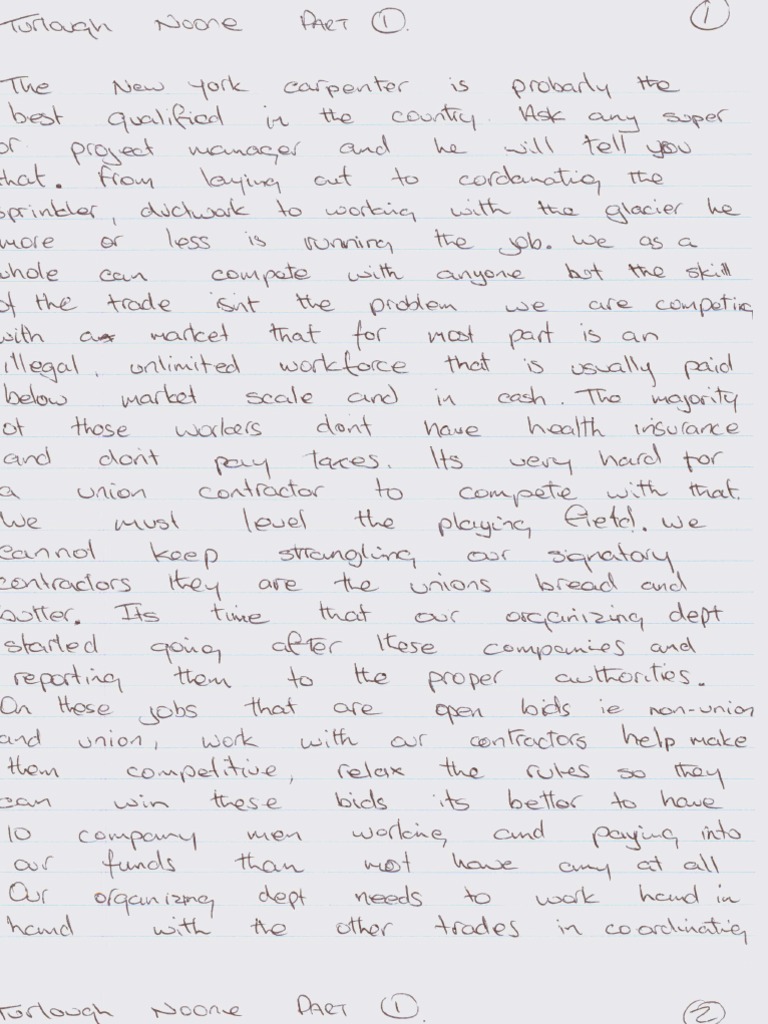 Turlough Noone Part ①. ①
The New York carpenter is probarly the
best qualified in the country. Ask any super
or project manager and he will tell you
that. From laying out to cordanatig the
sprinkler, ductwork to working with the glacier he
more or less is running the job. We as a
whole can compete with anyone but the skill
of the trade isn't the problem we are competing
with a market that for most part is an
illegal, unlimited workforce that is usually paid
below market scale and in cash. The majority
of those workers don't have health insurance
and don't pay taxes. Its very hard for
a union contractor to compete with that.
We must level the playing field. We
cannot keep strangling our signatory
contractors they are the unions bread and
butter. Its time that our organizing dept
started going after these companies and
reporting them to the proper authorities.
On these jobs that are open bids ie non-union
and union, work with our contractors help make
them competitive, relax the rules so they
can win these bids its better to have
10 company men working and paying into
our funds than not have any at all
Our organizing dept needs to work hand in
hand with the other trades in coordinating
Turlough Noone Part ①. ②